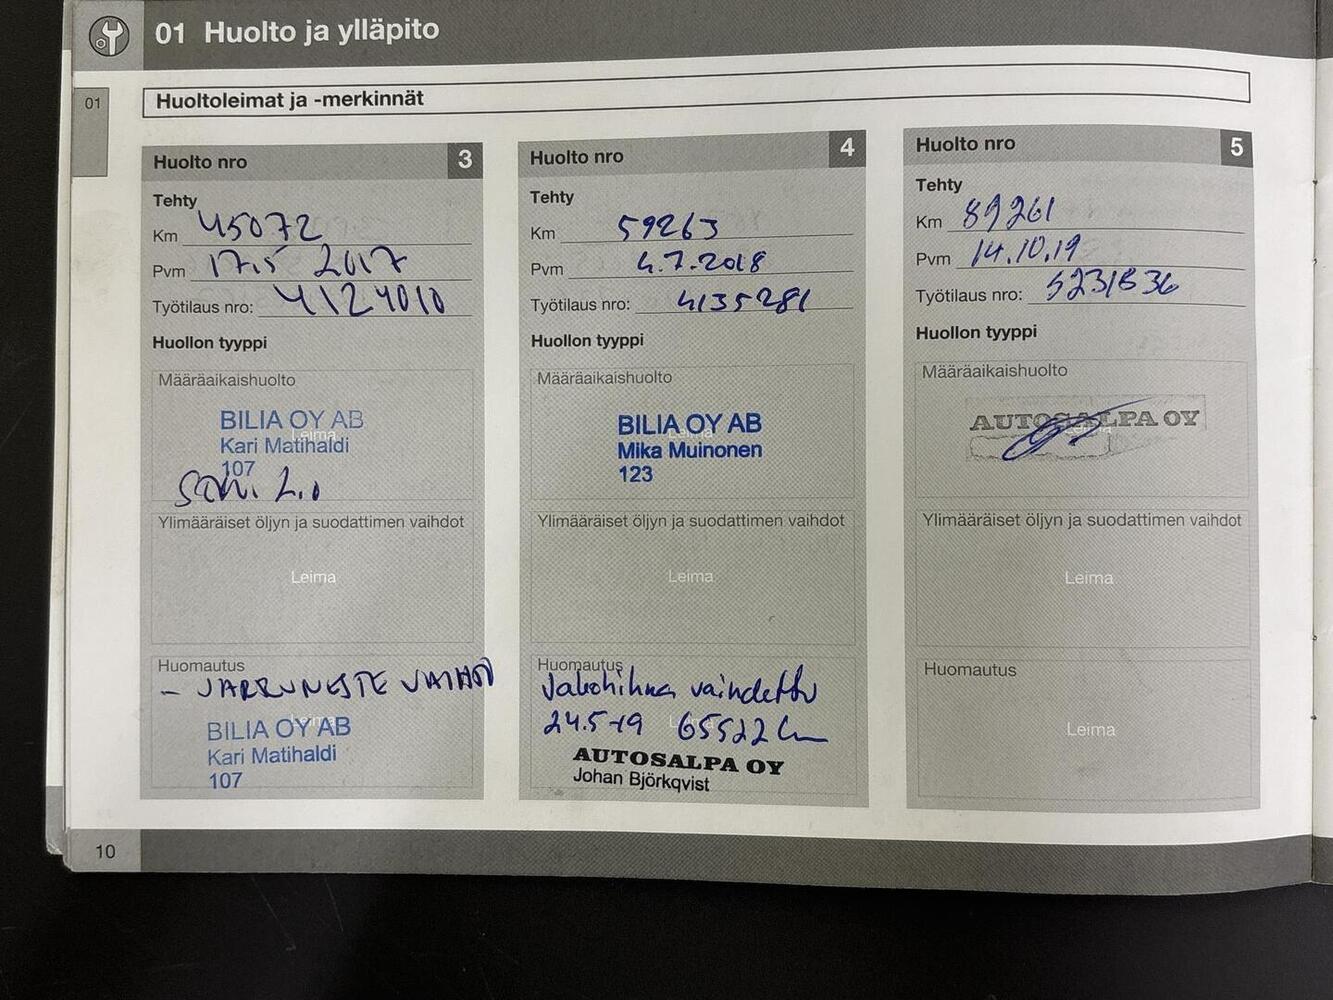 01 Huolto ja ylläpito
01
Huoltoleimat ja -merkinnät
Huolto nro 3
Tehty
Km 45072
Pvm 17.5 2017
Työtilaus nro: 4124010
Huollon tyyppi
Määräaikaishuolto
Leima
BILIA OY AB
Kari Matihaldi
107
Ylimääräiset öljyn ja suodattimen vaihdot
Leima
Huomautus
- JARRUNESTE VAIHTO
Leima
BILIA OY AB
Kari Matihaldi
107
Huolto nro 4
Tehty
Km 59263
Pvm 4.7.2018
Työtilaus nro: 4135281
Huollon tyyppi
Määräaikaishuolto
Leima
BILIA OY AB
Mika Muinonen
123
Ylimääräiset öljyn ja suodattimen vaihdot
Leima
Huomautus
Jakohihna vaihdettu
Leima
24.5-19 65522 km
AUTOSALPA OY
Johan Björkqvist
Huolto nro 5
Tehty
Km 89261
Pvm 14.10.19
Työtilaus nro:
Huollon tyyppi
Määräaikaishuolto
Leima
AUTOSALPA OY
Ylimääräiset öljyn ja suodattimen vaihdot
Leima
Huomautus
Leima
10